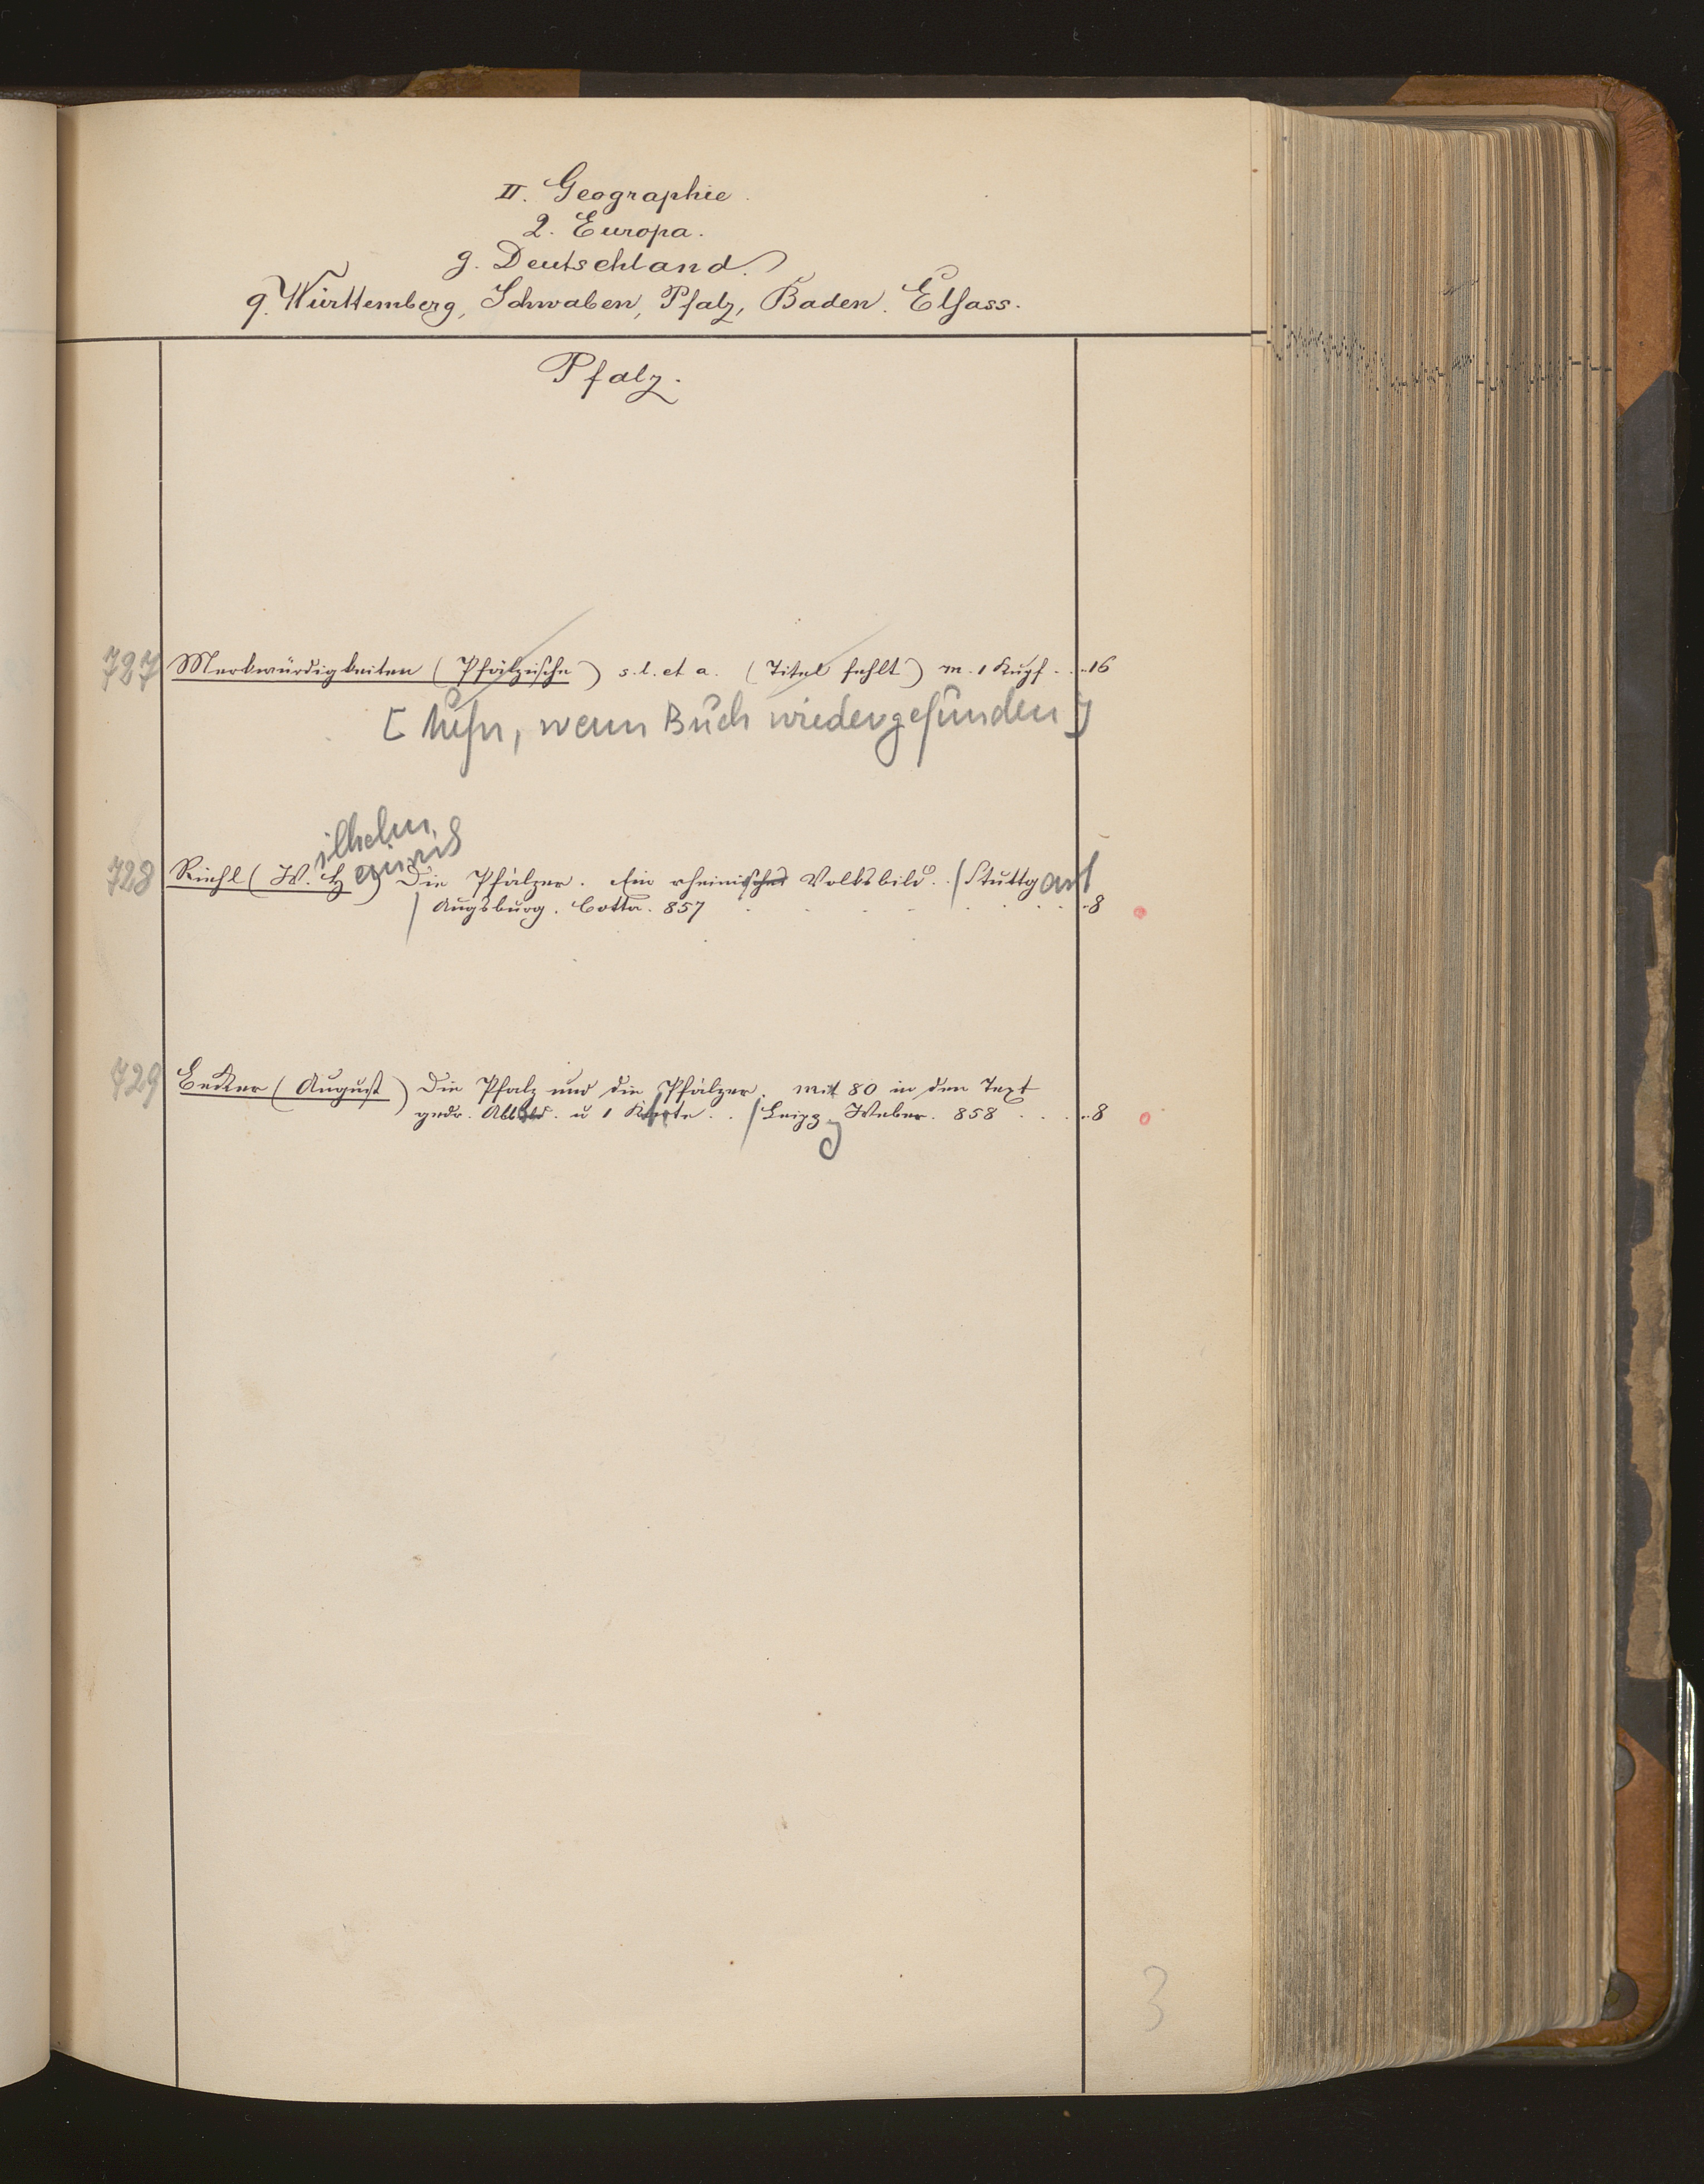 II. Geographie.
2. Europa.
g. Deutschland.
q. Württemberg, Schwaben, Pfalz, Baden. Elsass.
Pfalz.
727 Merkwürdigkeiten (Pfälzische) s. l. et a. (Titel fehlt) m. 1 Kupf. . . 16
[ , wenn Buch wiedergefunden ]
ilhelm einrich
728 Riehl (W. H.) Die Pfälzer. Ein rheinisches Volksbild. / Stuttgart
/ Augsburg. Cotta. 857 . . . . . . . . 8
729 Becker (August) Die Pfalz und die Pfälzer. Mit 80 in den Text
gedr. Abbild. u 1 Karte. . / Leipzg Weber. 858 . . . . 8
3